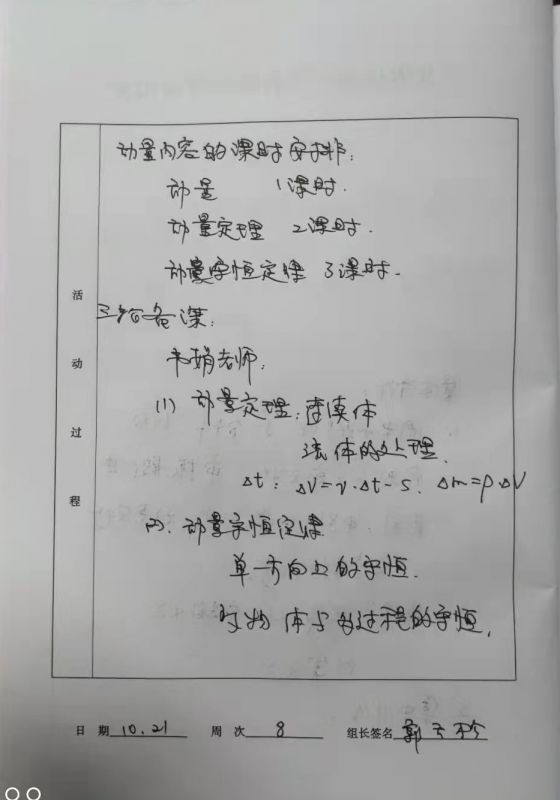 动量内容的课时安排：
动量 1课时.
动量定理 2课时.
动量守恒定律 3课时.
备课：
韦娟老师：
(1) 动量定理：连续体
流体的处理.
Δt： ΔV=v·Δt·S. Δm=ρ·ΔV
动量守恒定律
单一方向上的守恒.
多物体与多过程的守恒.
活动过程
日期 10.21 周次 8 组长签名 郭